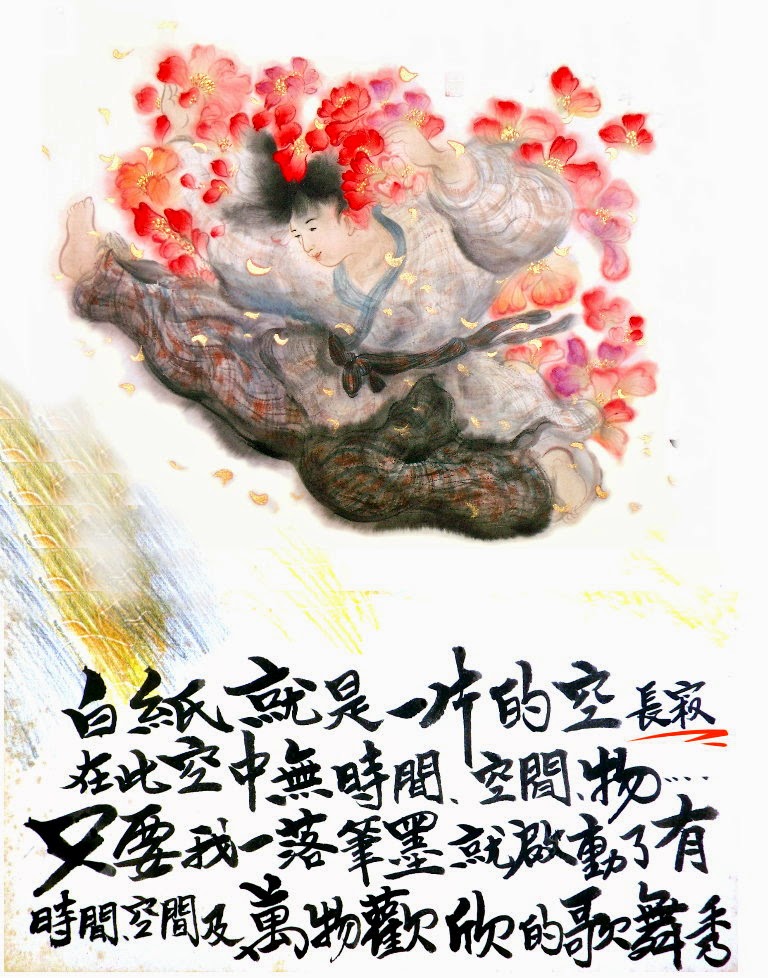 白紙就是一片的空 長寂
在此空中無時間、空間、物....
只要我一落筆墨就啟動了有
時間、空間及萬物歡欣的歌舞秀